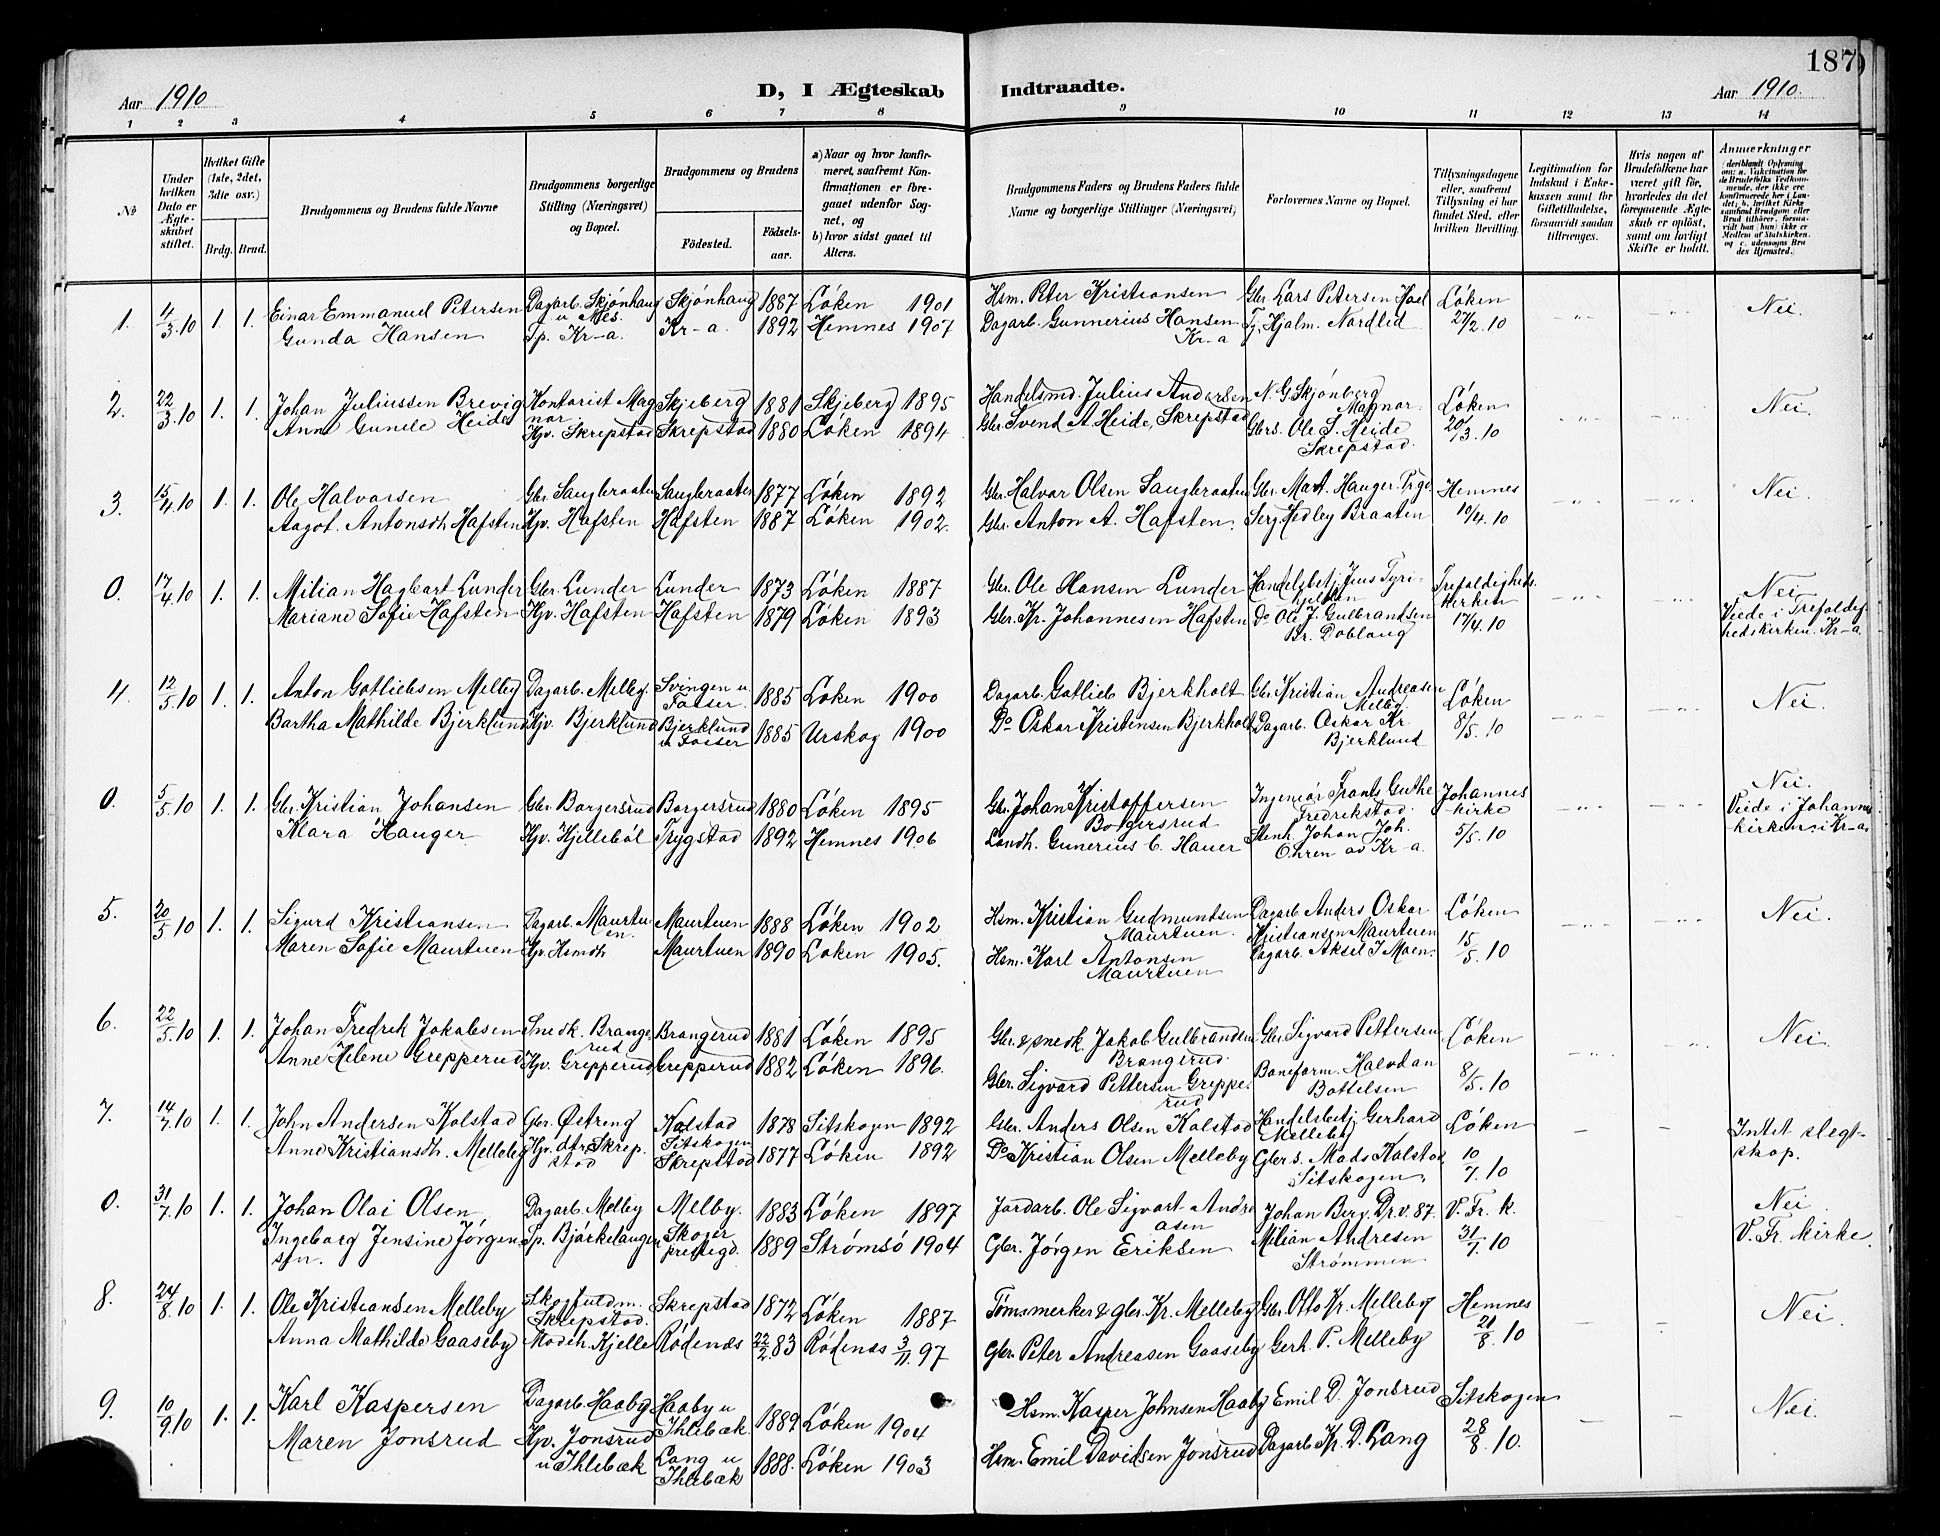 187
Aar 1910. D, I Ægteskab Indtraadte. Aar 1910.
1 2 3 4 5 6 7 8 9 10 11 12 13 14
No
Under hvilken Dato er Ægteskabet stiftet.
Hvilket Gifte (1ste, 2det, 3die osv.)
Brdg. Brud.
Brudgommens og Brudens fulde Navne
Brudgommens borgerlige Stilling (Næringsvei) og Bopæl.
Brudgommens og Brudens
Fødested. Fødselsaar.
a) Naar og hvor konfirmeret, saafremt Konfirmationen er foregaaet udenfor Sognet, og
b) hvor sidst gaaet til Alters.
Brudgommens Faders og Brudens Faders fulde Navne og borgerlige Stillinger (Næringsvei)
Forlovernes Navne og Bopæl.
Tillysningsdagene eller, saafremt Tillysning ei har fundet Sted, efter hvilken Bevilling.
Legitimation for Indskud i Enkekassen samt for Giftetilladelse, forsaavidt saadan tiltrænges.
Hvis nogen af Brudefolkene har været gift før, hvorledes da det foregaaende Ægteskab er opløst, samt om lovligt Skifte er holdt.
Anmerkninger (deriblandt Oplysning om: a. Vakcination for de Brudefolks Vedkommende, der ikke ere konfirmerede her i Landet; b. hvilket Kirkesamfund Brudgom eller Brud tilhører, forsaavidt han (hun) ikke er Medlem af Statskirken, og c. udensogns Brudes Hjemsted.)
1. 4/3.10 1. 1. Einar Emmanuel Petersen Dagarb. Skjønhaug u Mes. Skjønhaug 1887 Løken 1901 Hsm. Peter Kristiansen Gbr. Lars Petersen Løken Nei.
Gunda Hansen Tp. Kr-a. Kr-a. 1892 Hemnes 1907 Dagarb. Gunnerius Hansen Kr-a Hjalm. Nordlid 27/2.10
2. 22/3.10 1. 1. Johan Juliussen Brevig Kontorist Magnor Skjeberg 1881 Skjeberg 1895 Handelsmd. Julius Andersen N. G. Skjønberg Magnor. Løken Nei.
Anne Gunele Heide Hjv. Skrepstad Skrepstad 1880 Løken 1894 Gbr. Svend A. Heide, Skrepstad Gbrs. Ole S. Heide Skrepstad. 20/3.10
3. 15/4.10 1. 1. Ole Halvorsen Gbr. Saugbraaten Saugbraaten 1877 Løken 1892 Gbr. Halvor Olsen Saugbraaten Gbr. Mart. Hauger. Hemnes Nei.
Aagot. Antonsdh Hafsten Hjv. Hafsten Hafsten 1887 Løken 1902. Gbr. Anton A. Hafsten. Serg. Hedley Braaten 10/4.10
0. 17/4.10 1. 1. Milian Hagbart Lunder Gbr. Lunder Lunder 1873 Løken 1887 Gbr. Ole Hansen Lunder Handelsbetj. Jens Tyrigjelsen Trefoldighedskirken Nei
Mariane Sofie Hafsten Hjv. Hafsten Hafsten 1879 Løken 1893 Gbr. Kr. Johannesen Hafsten Do Ole J. Gulbrandsen Br. Doblaug 17/4.10 Viede i Trefoldighedskirken. Kr-a.
4. 12/5.10 1. 1. Anton Gotliebsen Melby Dagarb. Melby. Svingen u. Fosser. 1885 Løken 1900 Dagarb. Gotlieb Bjerkholt Gbr. Kristian Andreasen Melby. Løken Nei.
Bartha Mathilde Bjerklund Hjv. Bjerklund Bjerklund u Fosser 1885 Urskog 1900 Do Oskar Kristensen Bjerkholt Dagarb. Oskar Kr. Bjerklund 8/5.10
0. 5/5.10 1. 1. Gbr. Kristian Johansen Gbr. Borgersrud Borgersrud 1880 Løken 1895 Gbr. Johan Kristoffersen Borgersrud Ingeniør Frants Guthe Fredrikstad. Johannes kirke Nei.
Mara Hauger Hjv. Hjellebøl Trygstad 1892 Hemnes 1906 Landh. Gunerius C. Hauer Stenh. Johan Joh. Ohren av Kr-a. 5/5.10 Viede i Johanneskirken i Kr-a.
5. 20/5.10 1. 1. Sigurd Kristiansen Dagarb. Maurtuen. Maurtuen 1888 Løken 1902 Hsm. Kristian Gudmundsen Maurtuen. Dagarb Anders Oskar Kristiansen Maurtuen Løken Nei.
Maren Sofie Maurtuen Hjv. Hsmdh Maurtuen 1890 Løken 1905. Hsm. Karl Antonsen Maurtuen Dagarb. Aksel J Moen. 15/5.10
6. 22/5.10 1. 1. Johan Fredrik Jakobsen Snedk. Brangerud Brangerud 1881 Løken 1895 Gbr. & snedk. Jakob Gulbrandsen Brangerud. Gbr. Sigvard Pettersen Løken Nei.
Anne Helene Grepperud Hjv. Grepperud Grepperud 1882 Løken 1896. Gbr. Sigvard Pettersen Grepperud Baneform. Halvdan Bottelsen 8/5.10
7. 14/7.10 1. 1. John Andersen Kolstad Gbr. Østreng Kolstad Sitskogen 1878 Sitskogen 1892 Gbr. Anders Olsen Kolstad Handelsbetj. Gerhard Melleby Løken Intet slegtskap.
Anne Kristiansdh. Melleby Hjv. dtr. Skrepstad Skrepstad 1877 Løken 1892 Do Kristian Olsen Melleby Gbrs. Mads Kolstad, Sitskogen 10/7.10
0. 31/7.10 1. 1. Johan Olai Olsen Dagarb. Melby Melby. 1883 Løken 1897 Jordarb. Ole Sigvart Andreasen Johan Berg. Dr.v. 87. V. Fr. k. Nei
Ingeborg Jensine Jørgensen. Tp. Bjørkelangen Skoger prestegd. 1889 Strømsø 1904 Gbr. Jørgen Eriksen Milian Andresen Strømmen 31/7.10 V. Fr. kirke.
8. 24/8.10 1. 1. Ole Kristiansen Melleby Skogfuldm. Skrepstad. Skrepstad 1872 Løken 1887 Tømmermerker & gbr. Kr. Melleby Gbr. Otto Kr. Melleby Hemnes Nei.
Anna Mathilde Gaaseby Modeh. Kjelle Rødenæs 22/2.83 Rødenæs 3/11.97 Gbr. Peter Andreasen Gaaseby Gerh. P. Melleby 21/8.10
9. 10/9.10 1. 1. Karl Kaspersen Dagarb. Haaby Haaby u Ihlebæk. 1889 Løken 1904 Hsm. Kasper Johnsen Haaby Emil D. Jonsrud Sitskogen Nei.
Maren Jonsrud Hjv. Jonsrud u Ihlebæk Lang u Ihlebæk 1888. Løken 1903 Hsm. Emil Davidsen Jonsrud Dagarb Kr. D. Lang 28/8.10.